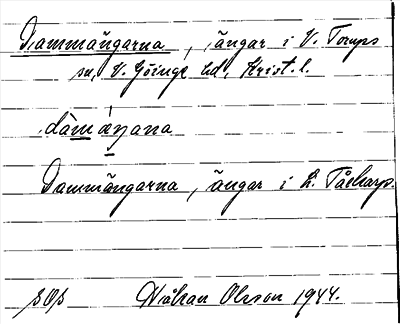 Dammängarna, ängar i V. Torups
sn, V. Göinge hd, Krist. l.
dàmáŋana
Dammängarna, ängar i L. Tåskarp.
sOs Håkan Olsson 1944.